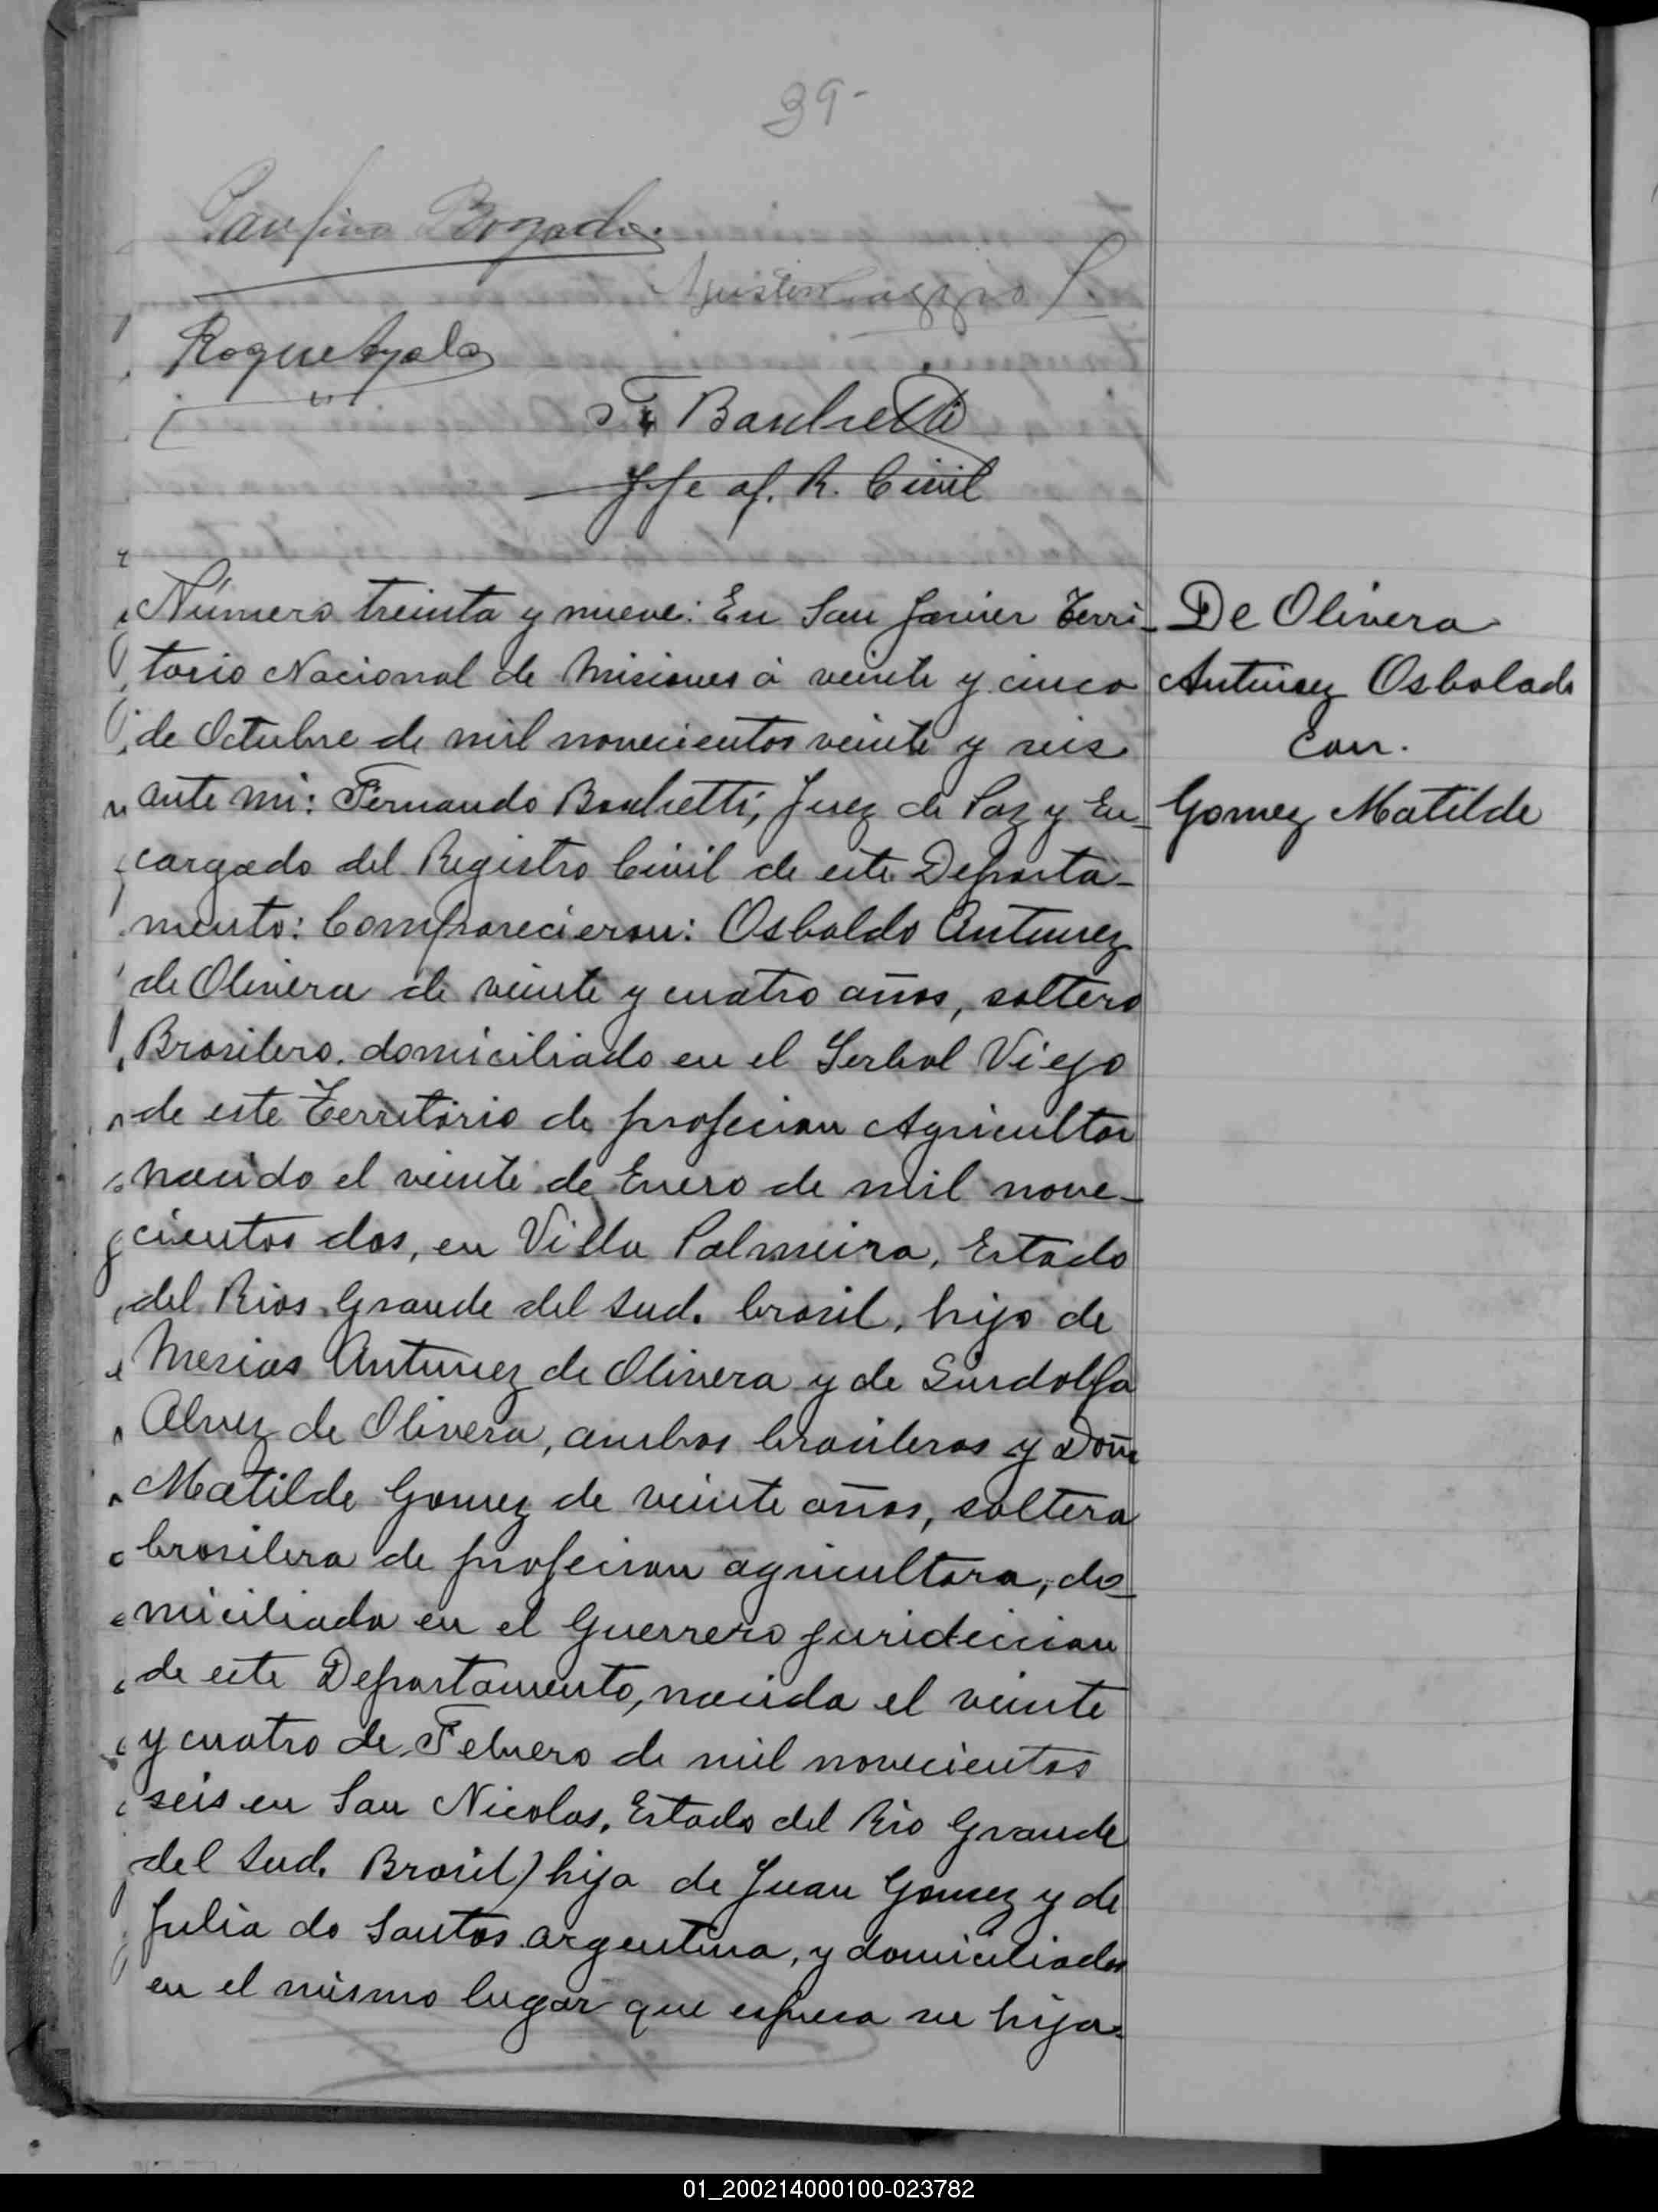 39-
Roque Ayala
F. Baschetti
Jfe of. R. Civil
Número treinta y nueve: En San Javier Terri-
torio Nacional de Misiones á veinte y cinco
de Octubre de mil novecientos veinte y seis
ante mi: Fernando Baschetti, Juez de Paz y En-
cargado del Registro Civil de este Departa-
mento: Comparecieron: Osbaldo Antunez
de Olivera de veinte y cuatro años, soltero
Brasilero. domiciliado en el Yerbal Viejo
de este Territorio de profecion Agricultor
nacido el veinte de Enero de mil nove-
cientos dos, en Villa Palmeira, Estado
del Rios Grande del Sud. brasil, hijo de
Mesias Antunez de Olivera y de Lindolfa
Alvez de Olivera, ambos brasileros y Doña
Matilde Gomez de veinte años, soltera
brasilera de profecion agricultora, do-
miciliada en el Guerrero juridiccion
de este Departamento, nacida el veinte
y cuatro de Febrero de mil novecientos
seis en San Nicolas, Estado del Rio Grande
del Sud. Brasil) hija de Juan Gomez y de
Julia do Santos argentina, y domiciliados
en el mismo lugar que espresa su hija.
De Olivera
Antunez Osbolado
Con.
Gomez Matilde
01_200214000100-023782